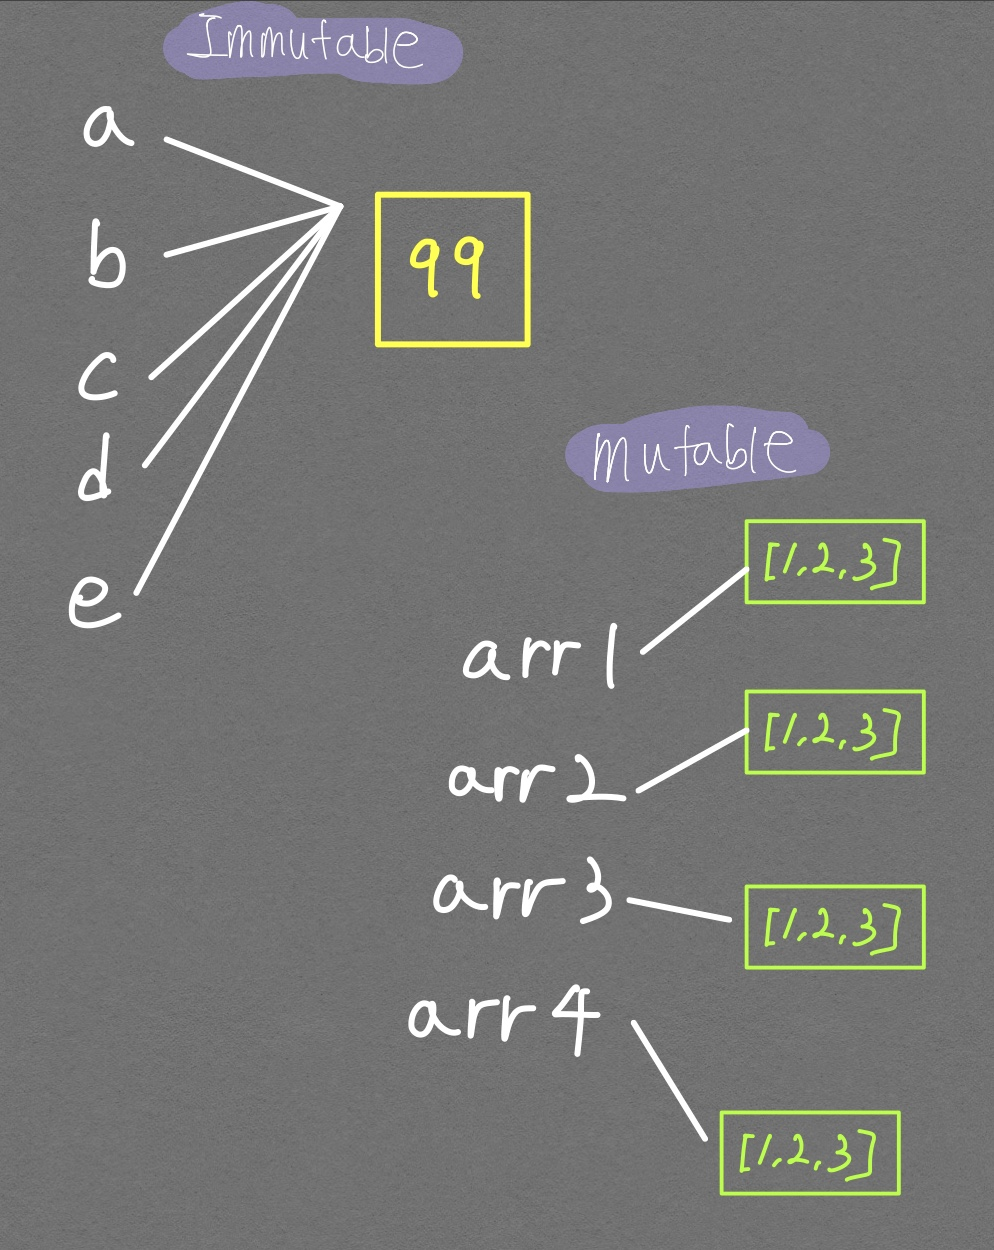 Immutable
a
b
c
d
e
99
Mutable
arr1
[1,2,3]
arr2
[1,2,3]
arr3
[1,2,3]
arr4
[1,2,3]